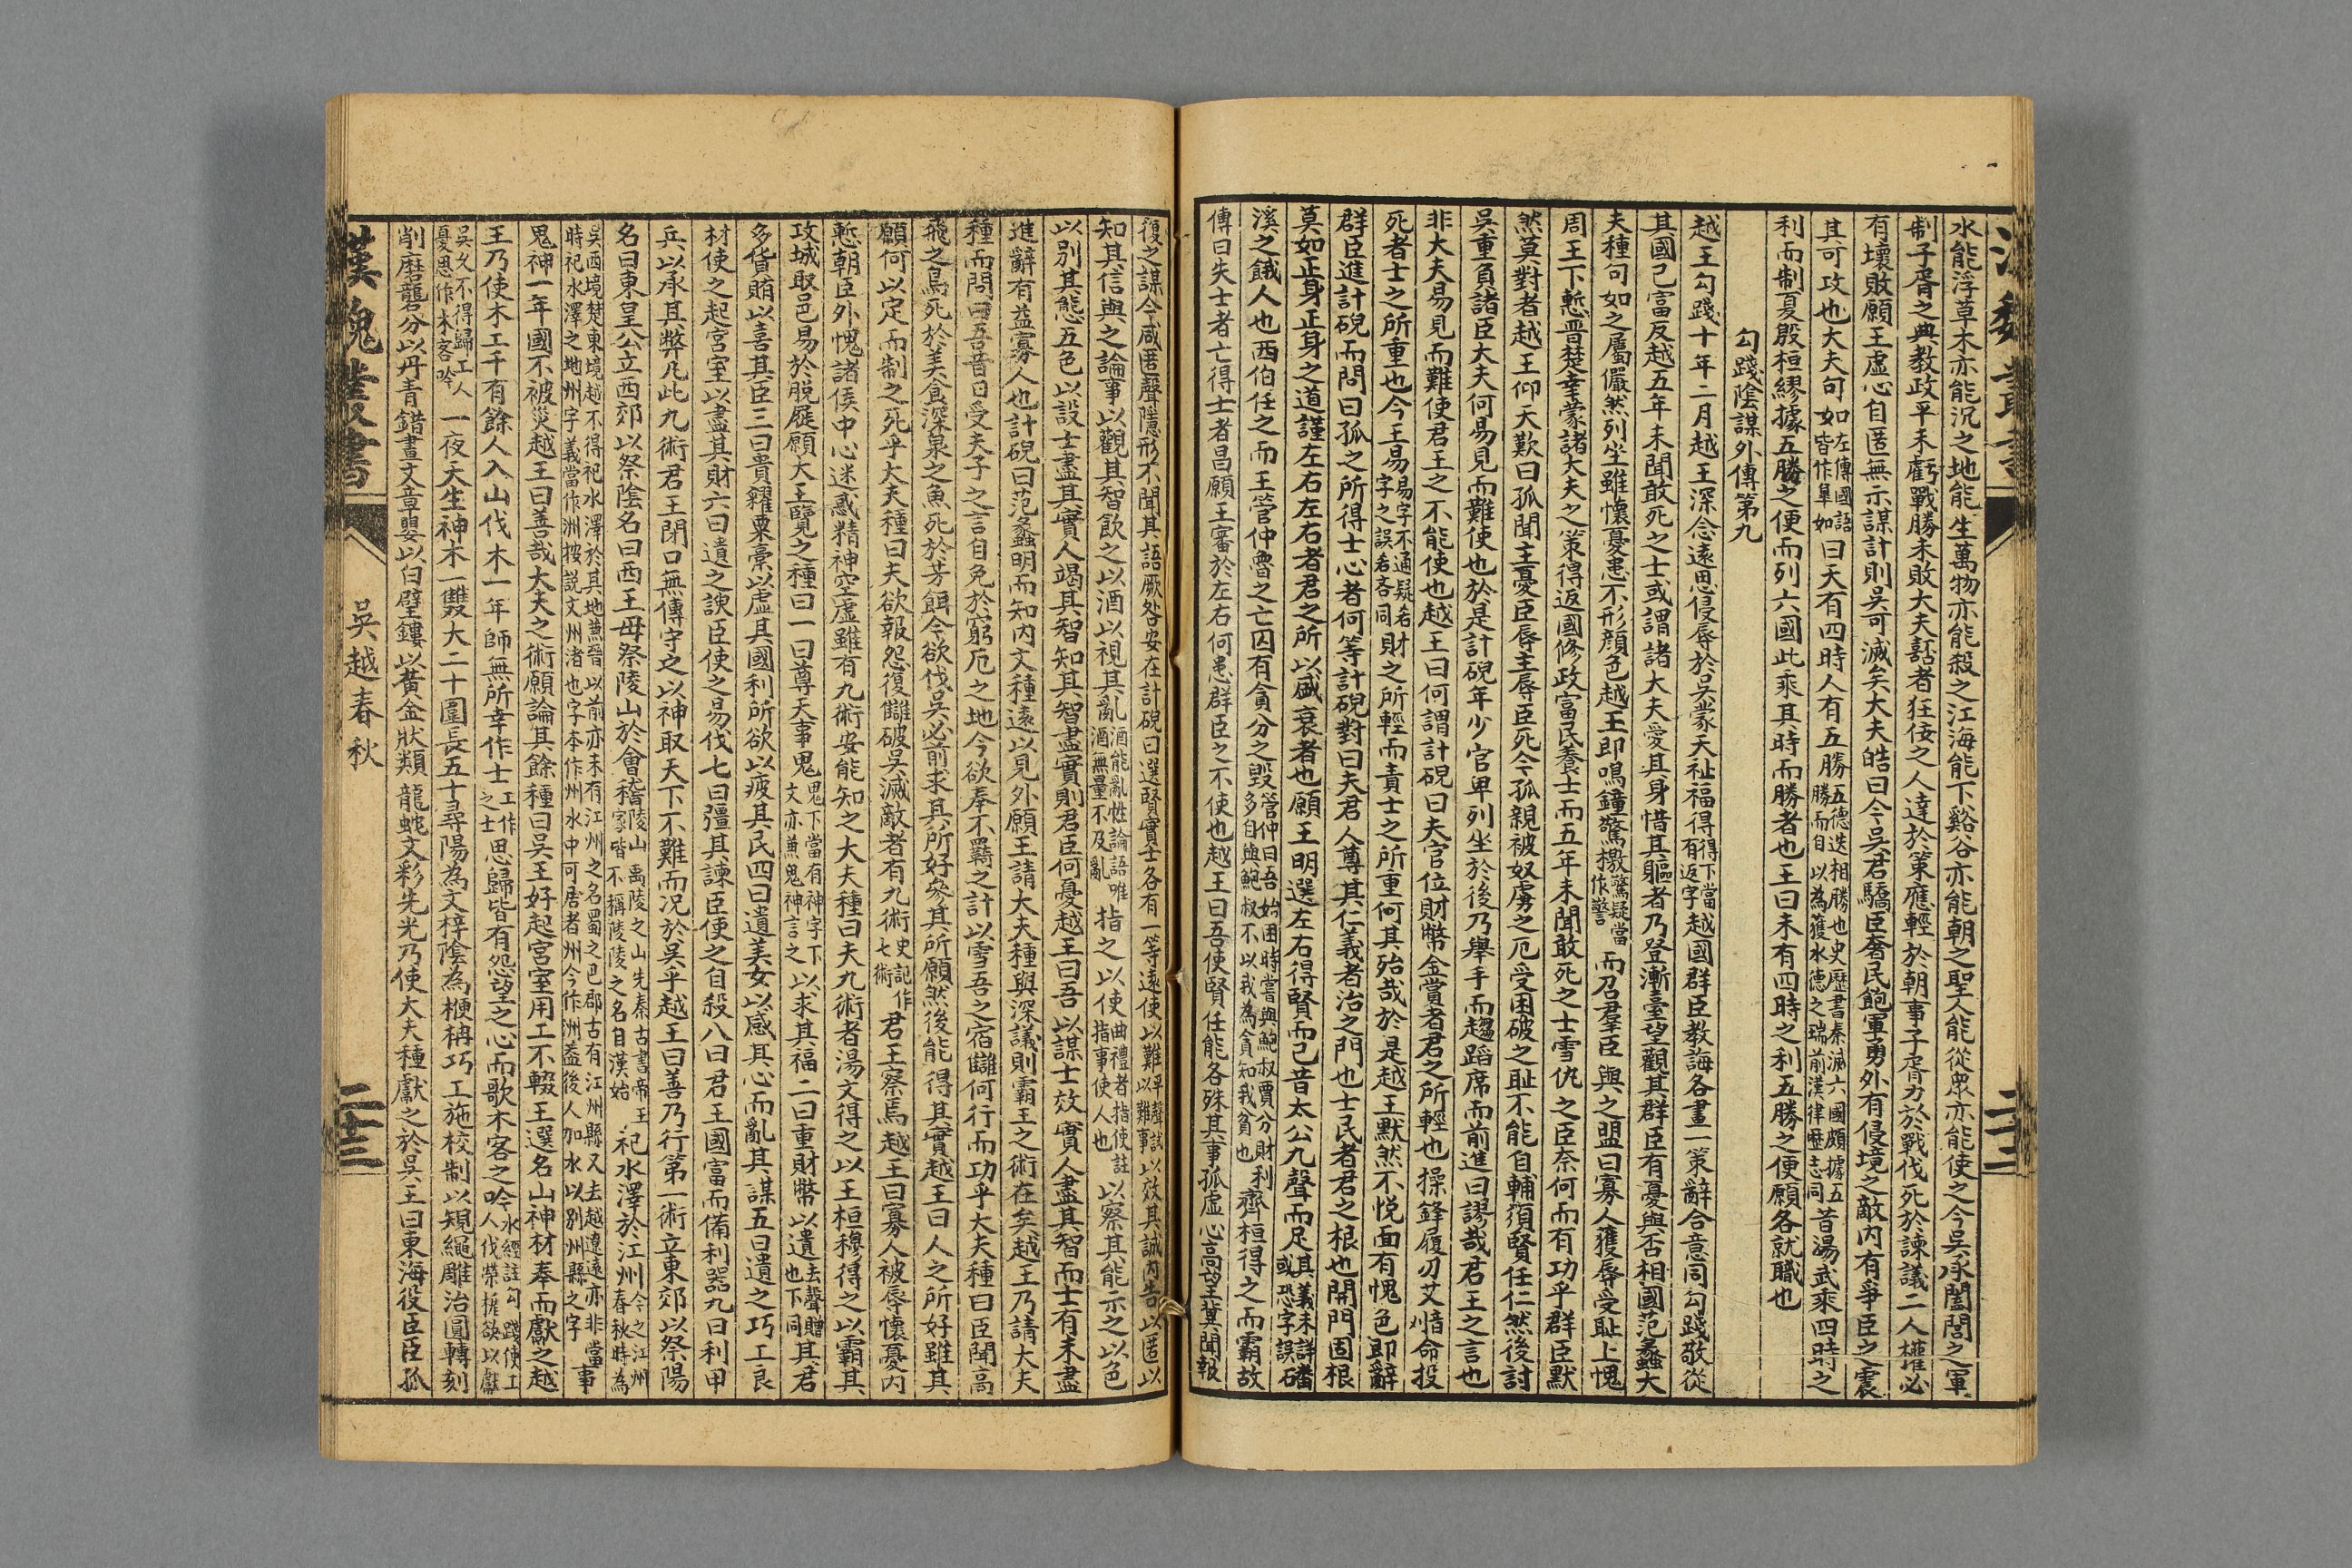 水能浮草木亦能沉之地能生萬物亦能殺之江海能下谿谷亦能朝之聖人能從眾亦能使之今吳承闔閭之軍
制子胥之典教政平未虧戰勝未敗大夫嚭者狂佞之人達於策慮輕於朝事子胥力於戰伐死於諫議二人權必
有壞敗願王虛心自匿無示謀計則吳可滅矣大夫皓曰今吳君驕臣奢民飽軍勇外有侵境之敵內有爭臣之震
其可攻也大夫句如左傳國語皆作皋如曰天有四時人有五勝五德迭相勝也史歷書秦滅六國頗據五勝而自以為獲水德之瑞前漢律歷志同昔湯武乘四時之
利而制夏殷桓繆據五勝之便而列六國此乘其時而勝者也王曰未有四時之利五勝之便願各就職也
勾踐陰謀外傳第九
越王勾踐十年二月越王深念遠思侵辱於吳蒙天祉福得得下當有返字越國群臣教誨各畫一策辭合意同勾踐敬從
其國已富反越五年未聞敢死之士或謂諸大夫愛其身惜其軀者乃登漸臺望觀其群臣有憂與否相國范蠡大
夫種句如之屬儼然列坐雖懷憂患不形顏色越王即鳴鐘驚檄驚疑當作警而召羣臣與之盟曰寡人獲辱受恥上愧
周王下慙晉楚幸蒙諸大夫之策得返國修政富民養士而五年未聞敢死之士雪仇之臣奈何而有功乎群臣默
然莫對者越王仰天歎曰孤聞主憂臣辱主辱臣死今孤親被奴虜之厄受囚破之恥不能自輔須賢任仁然後討
吳重負諸臣大夫何易見而難使也於是計硯年少官卑列坐於後乃舉手而趨蹈席而前進曰謬哉君王之言也
非大夫易見而難使君王之不能使也越王曰何謂計硯曰夫官位財幣金賞者君之所輕也操鋒履刃艾命投
死者士之所重也今王易易字不通疑名字之誤吝同財之所輕而責士之所重何其殆哉於是越王默然不悅面有愧色即辭
群臣進計硯而問曰孤之所得士心者何等計硯對曰夫君人尊其仁義者治之門也士民者君之根也開門固根
莫如正身正身之道謹左右左右者君之所以盛衰者也願王明選左右得賢而已昔太公九聲而足其義未詳或恐字誤磻
溪之餓人也西伯任之而王管仲魯之亡囚有貪分之毀管仲曰吾始困時嘗與鮑叔賈分財利多自與鮑叔不以我為貪知我貧也齊桓得之而霸故
傳曰失士者亡得士者昌願王審於左右何患群臣之不使也越王曰吾使賢任能各殊其事孤虛心高望冀聞報
復之謀今咸匿聲隱形不聞其語厥咎安在計硯曰選賢實士各有一等遠使以難平聲試以難事以效其誠內告以匿以
知其信與之論事以觀其智飲之以酒以視其亂酒能亂性論語唯酒無量不及亂指之以使曲禮者指使註指事使人也以察其能示之以色
以別其態五色以設士盡其實人竭其智知其智盡實則君臣何憂越王曰吾以謀士效實人盡其智而士有未盡
進辭有益寡人也計硯曰范蠡明而知內文種遠以見外願王請大夫種與深議則霸王之術在矣越王乃請大夫
種而問曰吾昔日受夫子之言自免於窮厄之地今欲奉不羈之計以雪吾之宿讎何行而功乎大夫種曰臣聞高
飛之鳥死於美食深泉之魚死於芳餌今欲伐吳必前求其所好參其所願然後能得其實越王曰人之所好雖其
願何以定而制之死乎大夫種曰夫欲報怨復讎破吳滅敵者有九術史記作七術君王察焉越王曰寡人被辱懷憂內
慙朝臣外愧諸侯中心迷惑精神空虛雖有九術安能知之大夫種曰夫九術者湯文得之以王桓穆得之以霸其
攻城取邑易於脫屣願大王覽之種曰一曰尊天事鬼鬼下當有神字下文亦兼鬼神言之以求其福二曰重財幣以遺去聲贈也下同其君
多貨賄以喜其臣三曰貴糴粟槀以虛其國利所欲以疲其民四曰遺美女以惑其心而亂其謀五曰遺之巧工良
材使之起宮室以盡其財六曰遺之諛臣使之易伐七曰彊其諫臣使之自殺八曰君王國富而備利器九曰利甲
兵以承其弊凡此九術君王閉口無傳守之以神取天下不難而況於吳乎越王曰善乃行第一術立東郊以祭陽
名曰東皇公立西郊以祭陰名曰西王母祭陵山於會稽陵山禹陵之山先秦古書帝王冢皆不稱陵陵之名自漢始祀水澤於江州今之江州春秋時為
吳西境楚東境越不得祀水澤於其地兼晉以前亦未有江州之名蜀之巴郡古有江州縣又去越遼遠亦非當時祀水澤之地州字義當作洲按說文州渚也字本作州水中可居者州今作洲蓋後人加水以別州縣之字事
鬼神一年國不被災越王曰善哉大夫之術願論其餘種曰吳王好起宮室用工不輟王選名山神材奉而獻之越
王乃使木工千有餘人入山伐木一年師無所幸作士工作之士思歸皆有怨望之心而歌木客之吟水經註勾踐使工人伐榮楯欲以獻
吳久不得歸工人憂思作木客吟一夜天生神木一雙大二十圍長五十尋陽為文梓陰為楩柟巧工施校制以規繩雕治圓轉刻
削磨礱分以丹青錯畫文章嬰以白璧鏤以黃金狀類龍蛇文彩生光乃使大夫種獻之於吳王曰東海役臣臣孤
漢魏叢書 吳越春秋 二十三